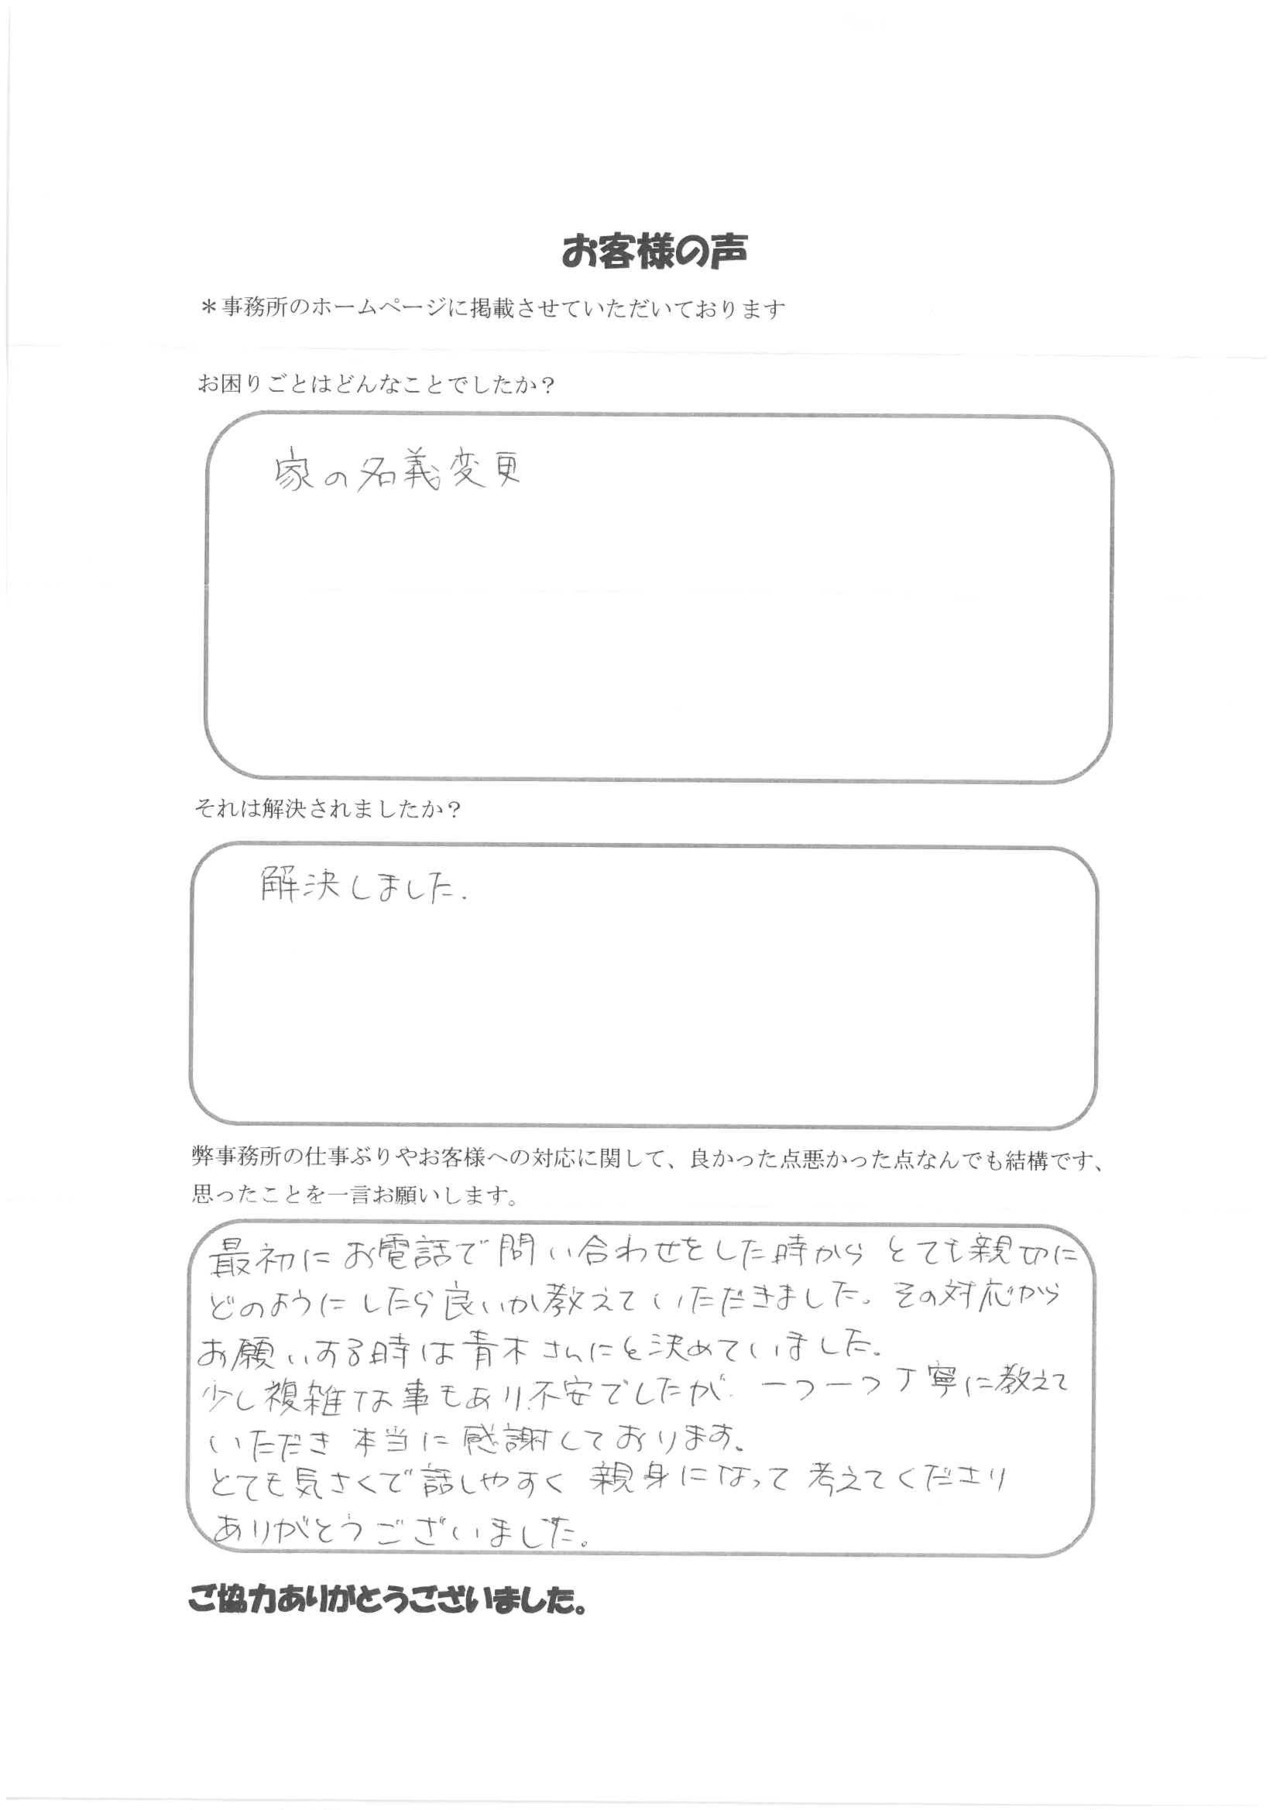 お客様の声
＊事務所のホームページに掲載させていただいております
お困りごとはどんなことでしたか？
家の名義変更
それは解決されましたか？
解決しました.
弊事務所の仕事ぶりやお客様への対応に関して、良かった点悪かった点なんでも結構です、
思ったことを一言お願いします。
最初にお電話で問い合わせをした時から とても親切に
どのようにしたら良いか教えていただきました。その対応から
お願いする時は青木さんにと決めていました。
少し複雑な事もあり不安でしたが 一つ一つ丁寧に教えて
いただき 本当に感謝しております。
とても気さくで話しやすく 親身になって考えてくださり
ありがとうございました。
ご協力ありがとうございました。